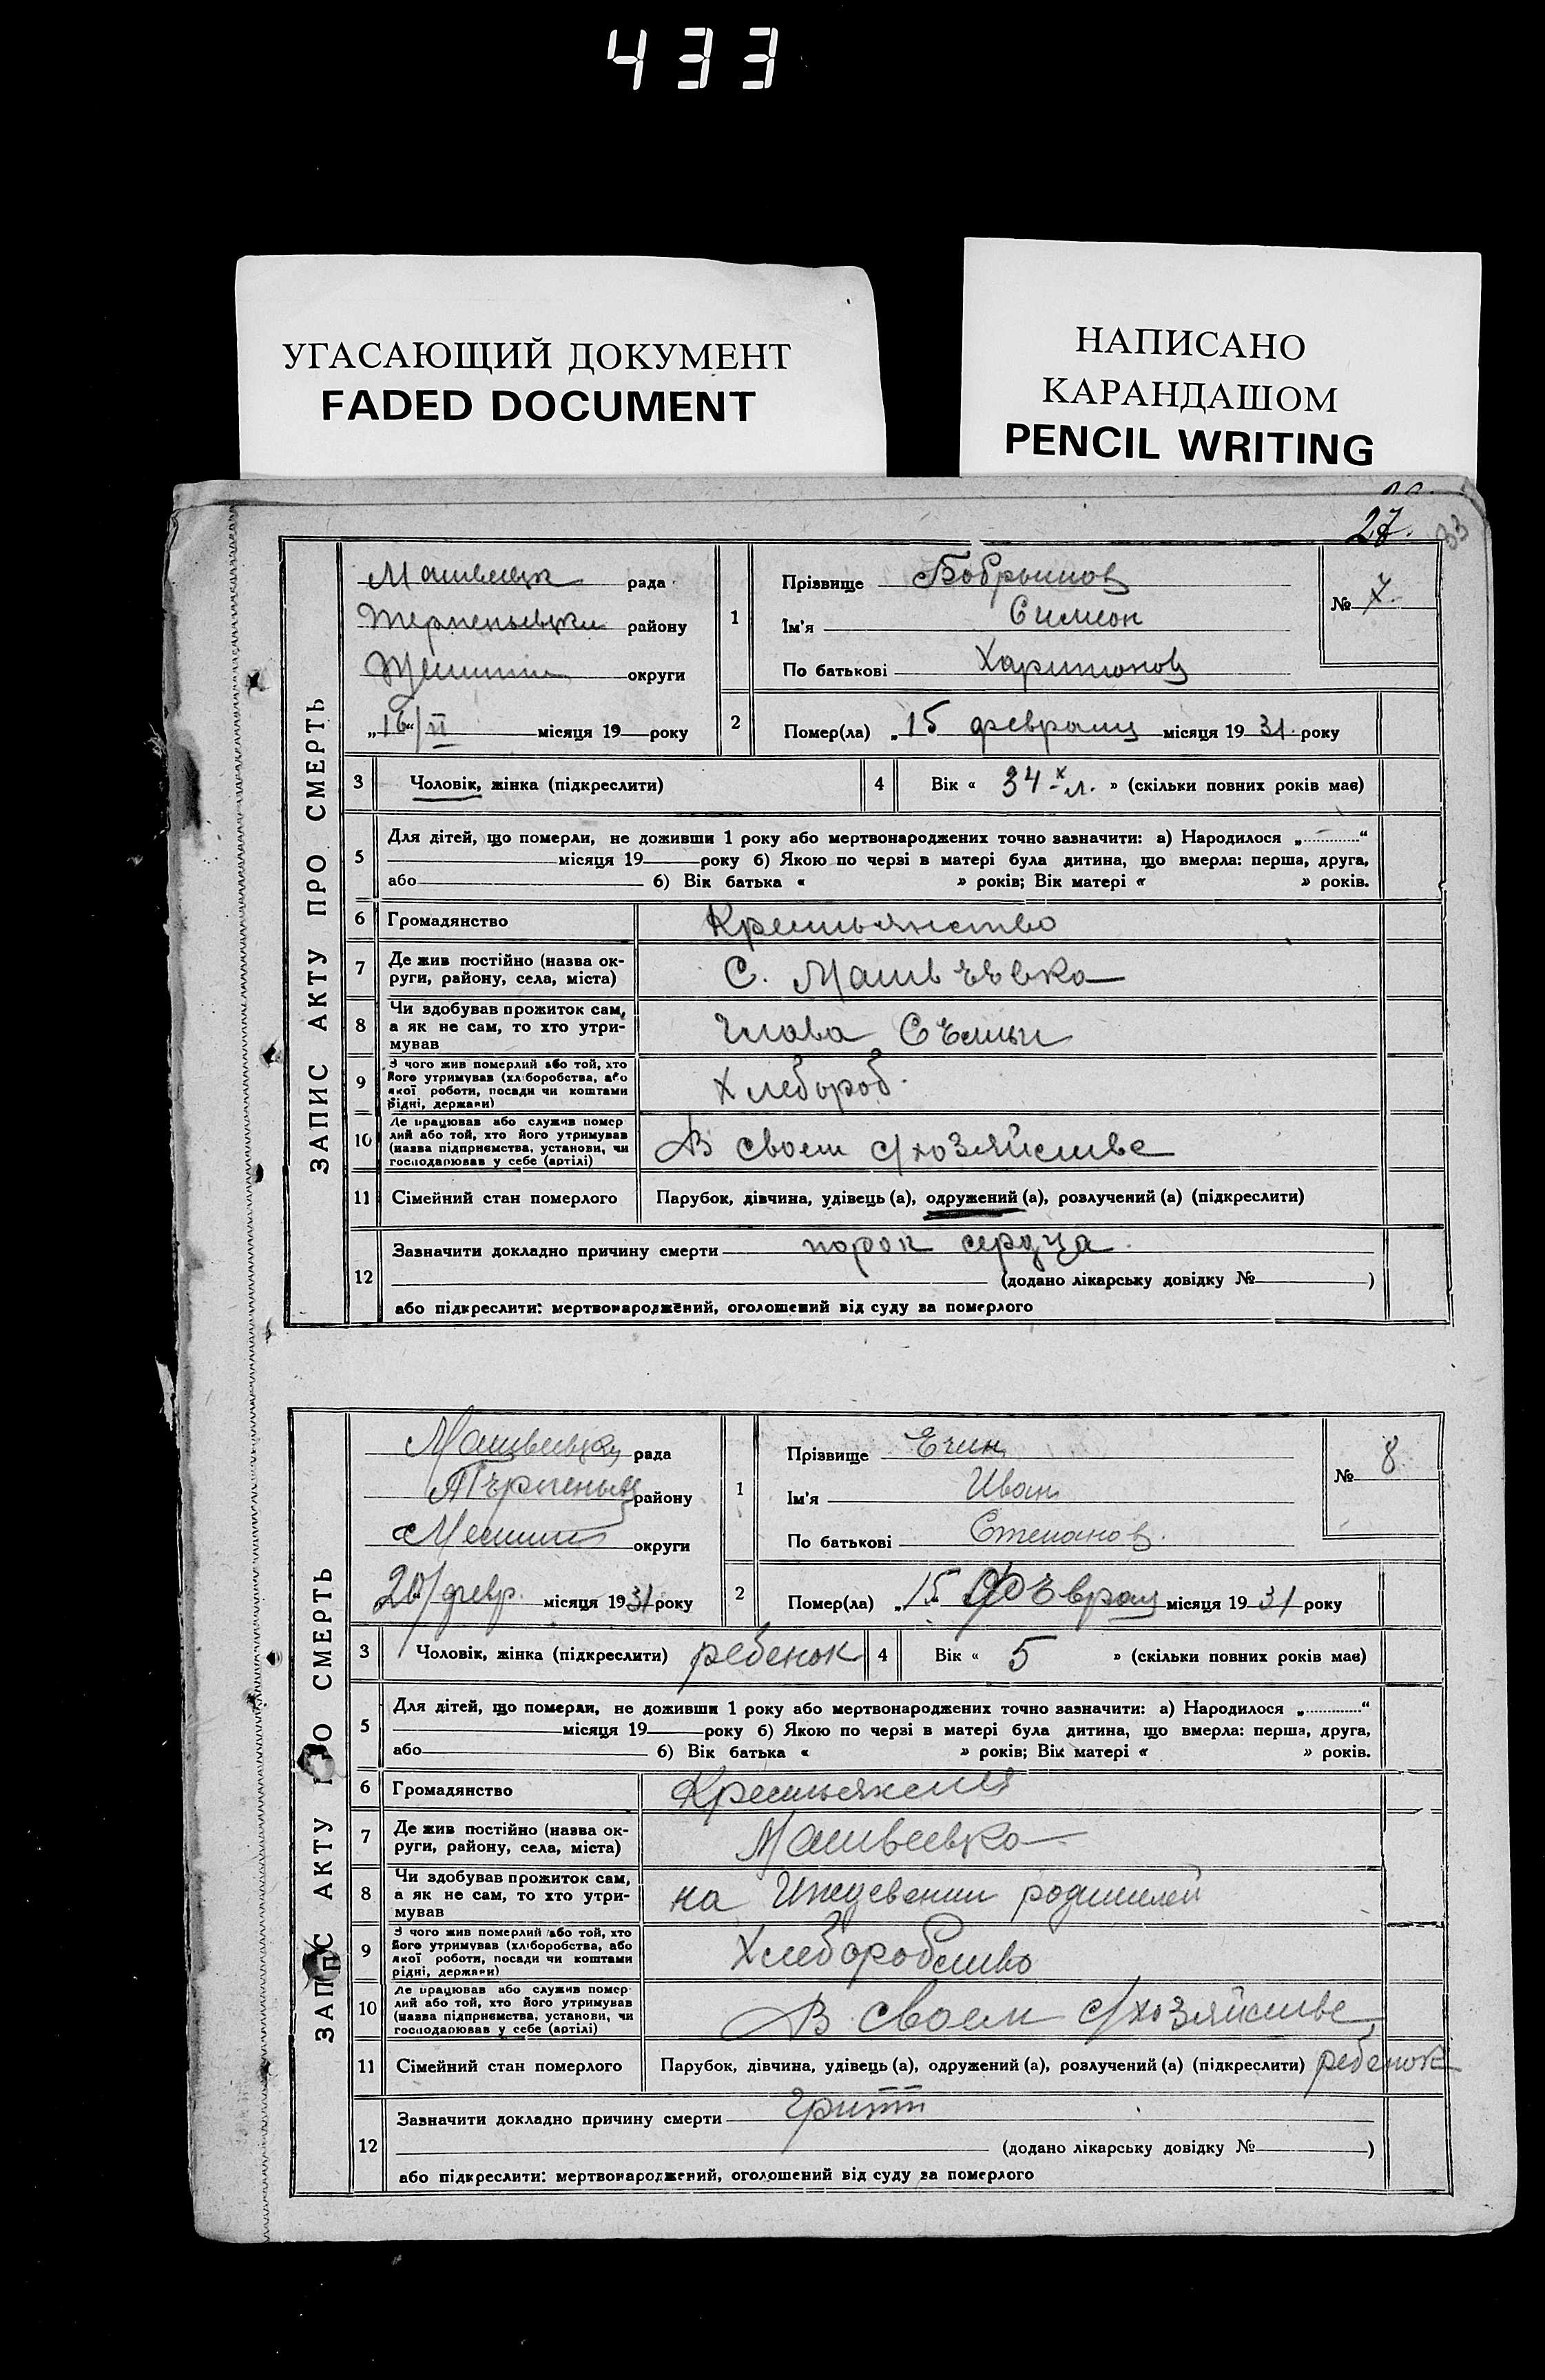 433
УГАСАЮЩИЙ ДОКУМЕНТ
FADED DOCUMENT
НАПИСАНО
КАРАНДАШОМ
PENCIL WRITING
27.
33
ЗАПИС АКТУ ПРО СМЕРТЬ
рада
району
округи
„16“/II місяця 19 року
1
Прізвище Бобрышов
Ім'я Симеон
По батькові Харитонов
№ 7.
2
Помер(ла) „15 февраля місяця 1931. року
3 Чоловік, жінка (підкреслити)
4 Вік « 34х л. » (скільки повних років має)
5
Для дітей, що померли, не доживши 1 року або мертвонароджених точно зазначити: а) Народилося „ “
місяця 19 року б) Якою по черзі в матері була дитина, що вмерла: перша, друга,
або б) Вік батька « » років; Вік матері « » років.
6 Громадянство Крестьянство
7 Де жив постійно (назва ок-
руги, району, села, міста)
С. Матвъевка
8 Чи здобував прожиток сам,
а як не сам, то хто утри-
мував
Глава Съмьи
9 З чого жив померлий або той, хто
його утримував (хліборобства, або
якої роботи, посади чи коштами
рідні, держави)
Хлебороб.
10 Де працював або служив помер
лий або той, хто його утримував
(назва підприємства, установи, чи
господарював у себе (артілі)
В своем с/хозяйстве
11 Сімейний стан померлого Парубок, дівчина, удівець (а), одружений (а), розлучений (а) (підкреслити)
12
Зазначити докладно причину смерти порок сердца.
(додано лікарську довідку № )
або підкреслити: мертвонароджений, оголошений від суду за померлого
ЗАПИС АКТУ ПРО СМЕРТЬ
рада
району
округи
20/февр. місяця 1931 року
1
Прізвище Ечин
Ім'я Иван
По батькові Степанов.
№ 8
2
Помер(ла) „15 Фъвраля місяця 1931 року
3 Чоловік, жінка (підкреслити) ребенок
4 Вік « 5 » (скільки повних років має)
5
Для дітей, що померли, не доживши 1 року або мертвонароджених точно зазначити: а) Народилося „ “
місяця 19 року б) Якою по черзі в матері була дитина, що вмерла: перша, друга,
або б) Вік батька « » років; Вік матері « » років.
6 Громадянство
7 Де жив постійно (назва ок-
руги, району, села, міста)
Матвеевка
8 Чи здобував прожиток сам,
а як не сам, то хто утри-
мував
на Иждевении родителей
9 З чого жив померлий або той, хто
його утримував (хліборобства, або
якої роботи, посади чи коштами
рідні, держави)
Хлеборобство
10 Де працював або служив помер
лий або той, хто його утримував
(назва підприємства, установи, чи
господарював у себе (артілі)
В своем с/хозяйстве
11 Сімейний стан померлого Парубок, дівчина, удівець (а), одружений (а), розлучений (а) (підкреслити) ребенок
12
Зазначити докладно причину смерти Грипп
(додано лікарську довідку № )
або підкреслити: мертвонароджений, оголошений від суду за померлого